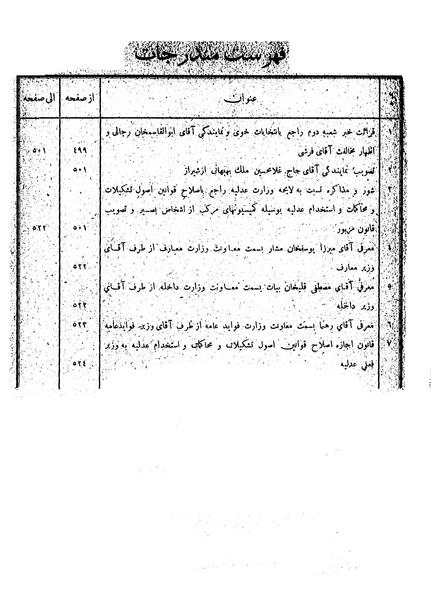 فهرست مندرجات
عنوان از صفحه الی صفحه
۱ قرائت خبر شعبه دوم راجع بانتخابات خوی و نمایندگی آقای ابوالقاسمخان رجالی و
اظهار مخالفت آقای فرشی ۴۹۹ ۵۰۱
۲ تصویب نمایندگی آقای حاج غلامحسین ملك بهبهانی از شیراز ۵۰۱
۳ شور و مذاکره نسبت به لایحه وزارت عدلیه راجع باصلاح قوانین اصول تشکیلات
و محاکمات و استخدام عدلیه بوسیله کمیسیونهای مرکب از اشخاص بصیر و تصویب
قانون مزبور ۵۰۱ ۵۲۲
۴ معرفی آقای میرزا یوسفخان مشار بسمت معاونت وزارت معارف از طرف آقای
وزیر معارف ۵۲۲
۵ معرفی آقای مصطفی قلیخان بیات بسمت معاونت وزارت داخله از طرف آقای
وزیر داخله ۵۲۳
۶ معرفی آقای رهنما بسمت معاونت وزارت فواید عامه از طرف آقای وزیر فواید عامه ۵۲۳
۷ قانون اجازه اصلاح قوانین اصول تشکیلات و محاکمات و استخدام عدلیه به وزیر
فعلی عدلیه ۵۲۴